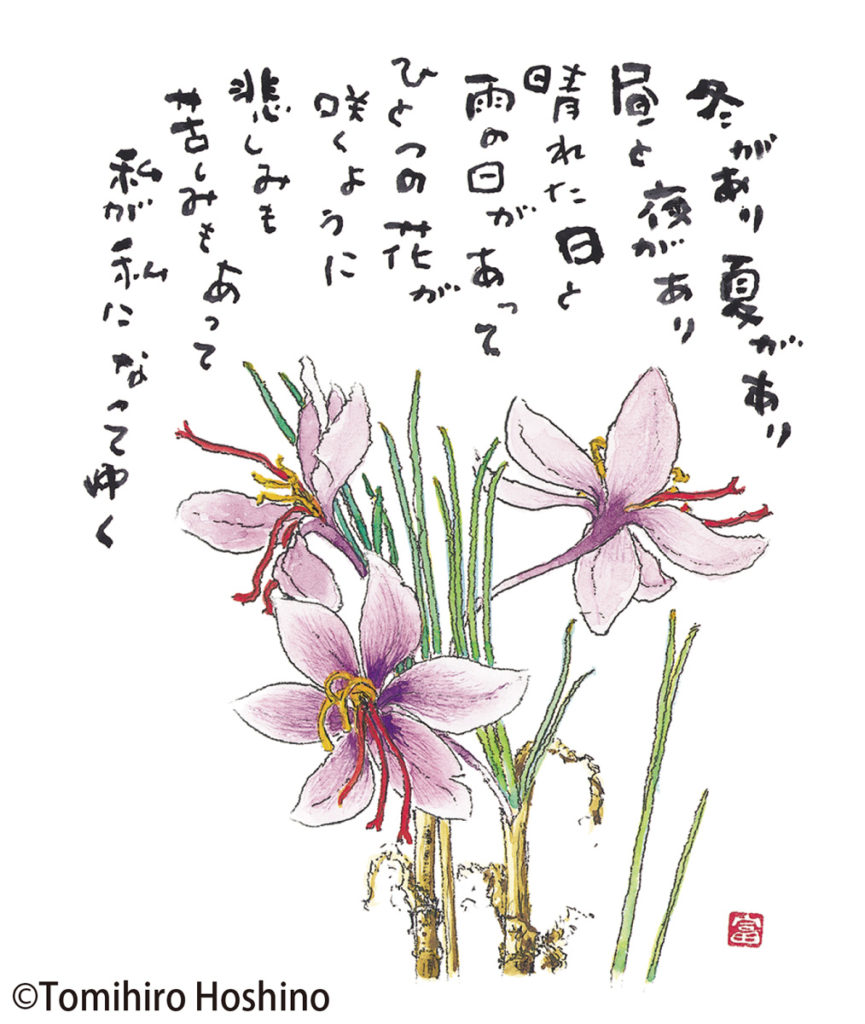 冬があり夏があり
昼と夜があり
晴れた日と
雨の日があって
ひとつの花が
咲くように
悲しみも
苦しみもあって
私が私になってゆく
富
©Tomihiro Hoshino